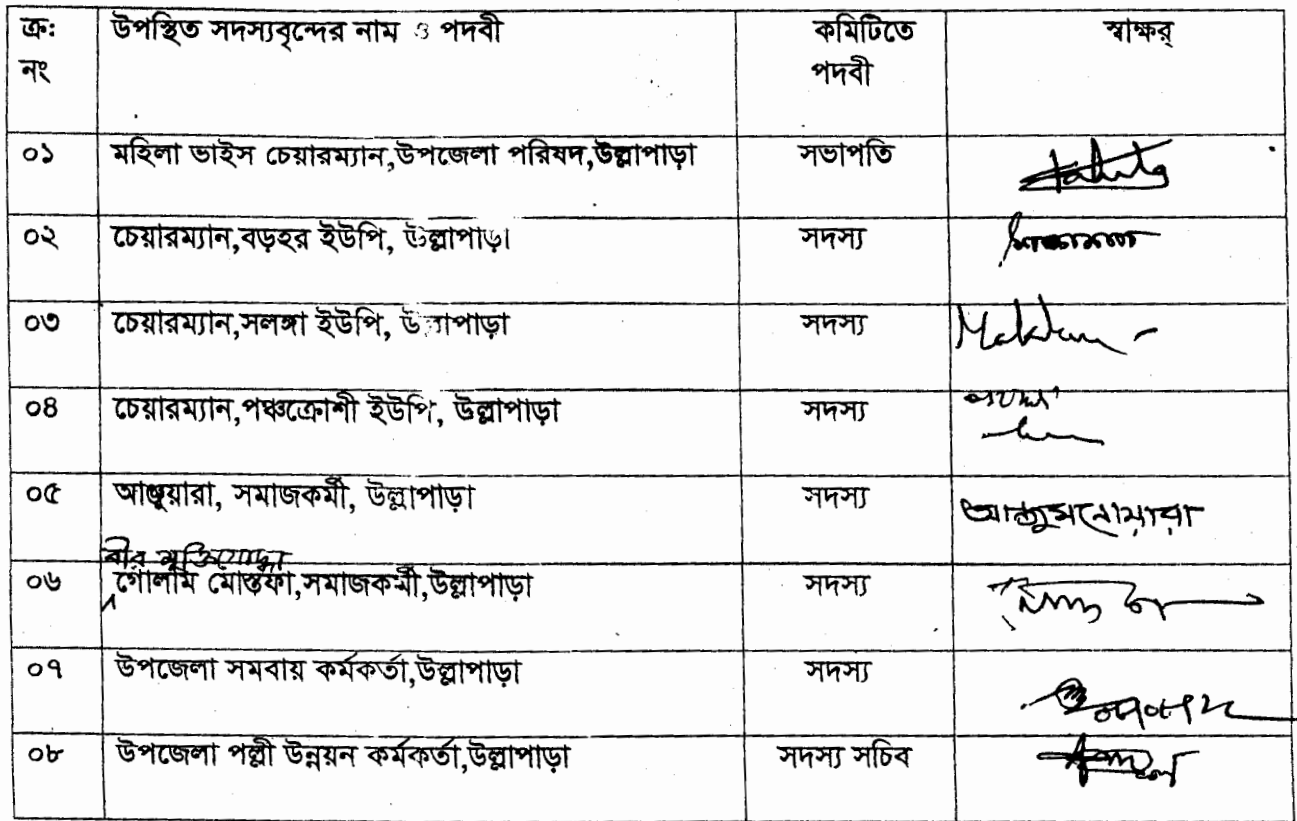 ক্র: উপস্থিত সদস্যবৃন্দের নাম ও পদবী কমিটিতে স্বাক্ষর
নং পদবী
০১ মহিলা ভাইস চেয়ারম্যান,উপজেলা পরিষদ,উল্লাপাড়া সভাপতি
০২ চেয়ারম্যান,বড়হর ইউপি, উল্লাপাড়া সদস্য
০৩ চেয়ারম্যান,সলঙ্গা ইউপি, উল্লাপাড়া সদস্য
০৪ চেয়ারম্যান,পঞ্চক্রোশী ইউপি, উল্লাপাড়া সদস্য
০৫ আঞ্জুয়ারা, সমাজকর্মী, উল্লাপাড়া সদস্য আন্জুমনোয়ারা
বীর মুক্তিযোদ্ধা
০৬ গোলাম মোস্তফা,সমাজকর্মী,উল্লাপাড়া সদস্য
০৭ উপজেলা সমবায় কর্মকর্তা,উল্লাপাড়া সদস্য
০৮ উপজেলা পল্লী উন্নয়ন কর্মকর্তা,উল্লাপাড়া সদস্য সচিব